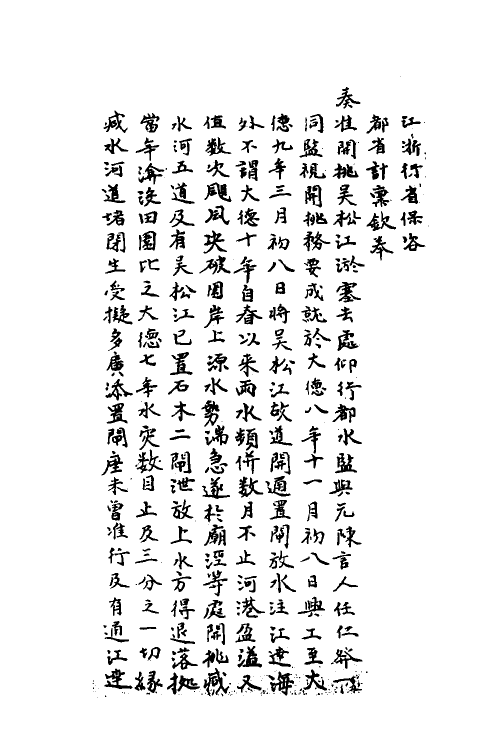 江浙行省保咨
都省計稟欽奉
奏准開挑吴松江淤塞去處仰行都水監與元陳言人任仁發一
同監視開挑務要成就於大德八年十一月初八日興工至大
德九年三月初八日將吴松江故道開通置閘放水注江達海
外不謂大德十年自春以来雨水頻併数月不止河港盈溢又
值数次颶風突破圍岸上源水勢湍急遂於廟涇等處開挑减
水河五道及有吴松江已置石木二閘泄放上水方得退落拠
當年渰没田圍比之大德七年水灾数目止及三分之一切緣
减水河道堵閉生受擬多廣添置閘座未曾准行及有通江達